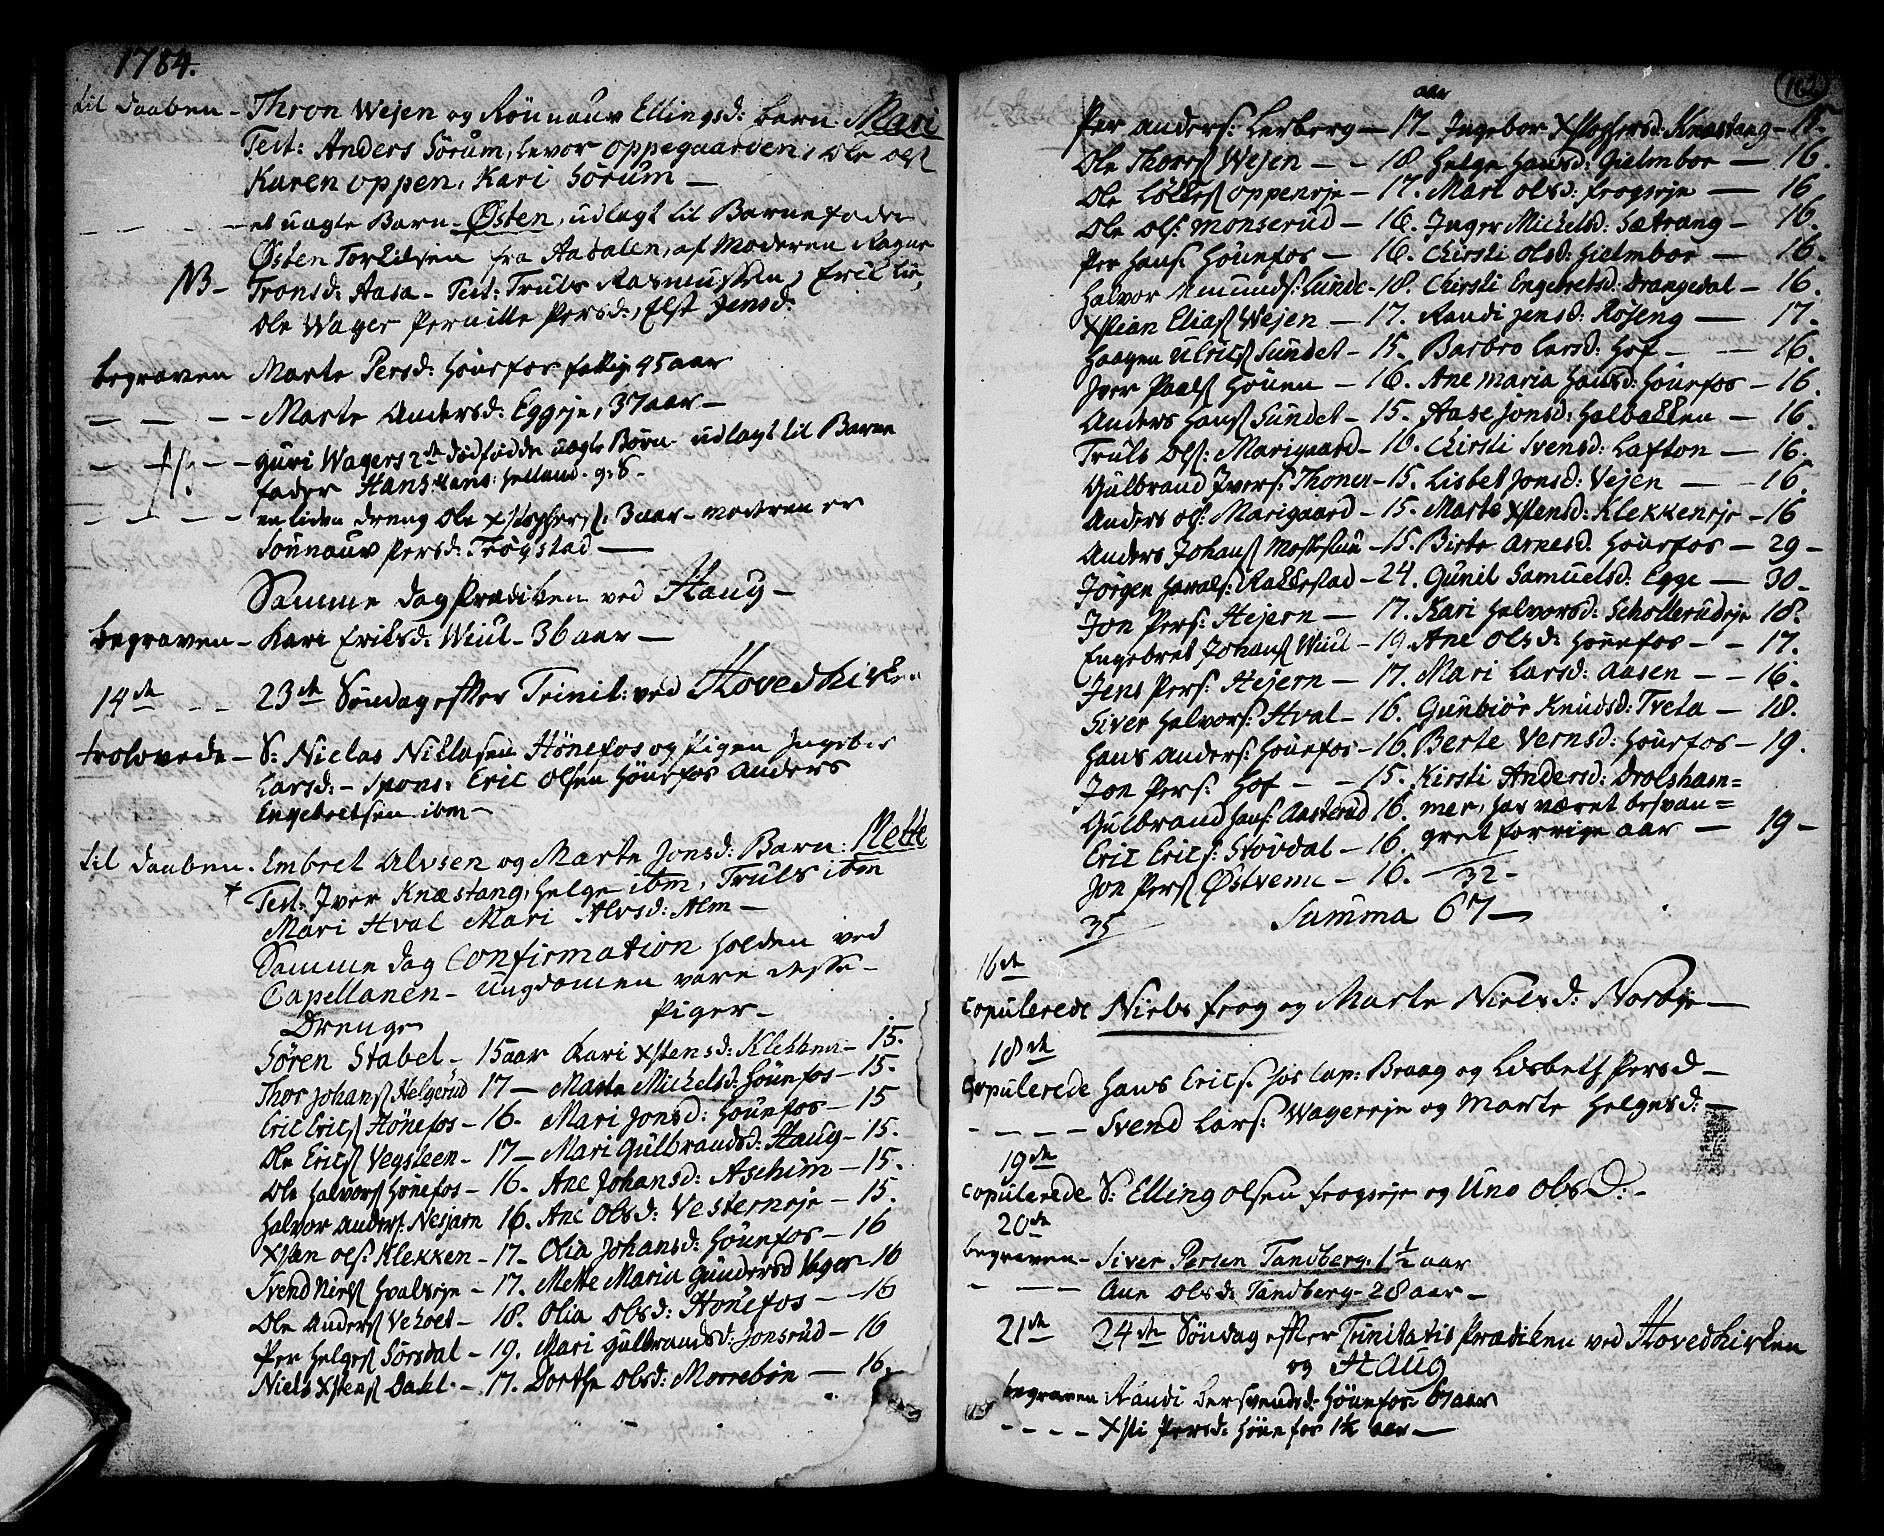 1784.
til daaben - Thron Wejen og Rönnauv Ellingsd: barn: Mari
Test: Anders Sörum, Levor oppegaarden, Ole Ols
Karen oppen, Kari Sörum —
et uægte Barn - Østen, udlagt til Barnefader
Østen Torkilsen fra Aadalen, af Moderen Ragne
NB - Tronsd: Aasa - Test: Truls Rasmussen, Eric
Ole Wager Pernille Persd:, Else Jensd:
begraven Marte Persd: Hönefos fattig 95 aar
— — — - Marte Andersd: Eggeje, 37 aar —
— — — Guri Wagers 2de dödfödde uægte Börn - udlagt til Barne
fader Hans Hans: Helland - g: 8 -
— — — en liden dreng Ole Xstophers: 3 aar - modren er
Sönnauv Persd: Trögstad —
Samme dag Prædiken ved Haug -
begraven - Kari Eriksd: Wiul - 36 aar —
14de - - 23de Söndag efter Trinit: ved Hovedkirken
trolovede - S: Niclas Niklasen Hönefos og Pigen Ingebor
Larsd: - Spons: Eric Olsen Hönefos Anders
Engebretsen ibm -
til daaben. Embret Alvsen og Marte Jonsd: Barn: Mette
Test: Iver Knæstang, Helge ibm, Truls ibm
Mari Hval Mari Alvsd: Alm —
Samme dag Confirmation holden ved
Capellanen - ungdomen vare disse -
Drenge Piger -
Sören Stabel - 15 aar Kari Xstensd: Klekken - 15.
Thor Johans Helgerud 17 — Marte Michelsd: Hönefos - 15.
Eric Erics Hönefos - 16. Mari Jonsd: Hönefos - 15
Ole Erics Vegsteen - 17 — Mari Gulbrandsd: Haug - 15.
Ole Halvors Hönefos - 16. Ane Johansd: Aschim - 15.
Halvor Anders: Nesjarn 16. Ane Olsd: Vesterneje - 15.
Xsten Ols: Klekken - 17. Olia Johansd: Hönefos - 16
Svend Niels Hvalseje - 17. Mette Maria Gundersd Wager - 16
Ole Anders Veholt - 18. Olia Olsd: Hönefos - 16
Per Helges Sörsdal - 19. Mari Gulbrandsd: Jonsrud - 16
Niels Xstens Dahl - 17. Dorthe Olsd: Morrebön — 16.
162
aar
Per Anders: Lerberg — 17 - Ingebor Xstophersd: Knæstang - 15.
Ole Thores Wejen — - 18. Helge Hansd: Gielmboe — 16.
Ole Lökkes Oppeneje - 17. Mari Olsd: Frogseje — 16
Ole Ols: Monserud - 16. Inger Michelsd: Sætrang - 16.
Per Hans: Hönefos - 16. Chirsti Olsd: Gielmboe — 16.
Halvor Amunds: Lunde - 18. Chirsti Engebretsd: Drangedal - 16.
Xstian Elias Wejen — 17. Randi Jensd: Röjseng — 17.
Haagen Ulrics Sundet - 15. Barbro Larsd: Hof - — 16.
Iver Paals Hönen - 16. Ane Maria Hansd: Hönefos - 16
Anders Hans Sundet - 15. Aase Jonsd: Halbakken — 16.
Truls Ols: Marigaard - 16. Chirsti Svensd: Lafton — 16.
Gulbrand Ivers: Thonen - 15. Lisbet Jonsd: Vejen — - 16.
Anders Ols: Marigaard - 15. Marte Xstensd: Klekkeneje - 16
Anders Johans - 15. Birte Arnesd. Hönefos — 29 -
Jörgen Haralss: Rakkestad - 24. Gunil Samuelsd: Egge — 30 -
Jon Pers: Hejern — 17. Kari Halvorsd: Schollerudeje 18.
Engebret Johans Wiul - 19 Ane Olsd: Hönefos - - 17.
Jens Pers: Hejern — 17. Mari Larsd: Aasen - - 16.
Siver Halvors: Hval - 16. Gunbiör Knudsd: Tveta — 18.
Hans Anders: Hönefos - 16. Berte Vernsd: Hönefos - 19.
Jon Pers: Hof - - 15. Kirsti Andersd: Drolsham=
Gulbrand Hans: Aasterud 16. mer, har været besvan=
Eric Erics: Stövdal - 16. gret forrige aar — 19 -
Jon Pers Østvenn - 16. 32 -
35 Summa 67 —
16de
copulerede Niels Frog og Marte Nielsd: Norbye —
18de
Copulerede Hans Erics: hos Cap: Braag og Lisbeth Persd -
- — — - Svend Lars: Wagereje og Marte Helgesd: —
19de
copulerede S: Elling Olsen Frogseje og Uno Olsd: -
20de
begraven - Siver Persen Tandberg: 1½ aar
- — — Ane Olsd: Tandberg - 28 aar -
21de 24de Söndag efter Trinitatis Prædiken ved Hovedkirken
og Haug
begraven Randi Bersvendsd: Hönefos - 67 aar
- - - - Xsti Persd: Hönefos 1½ aar —